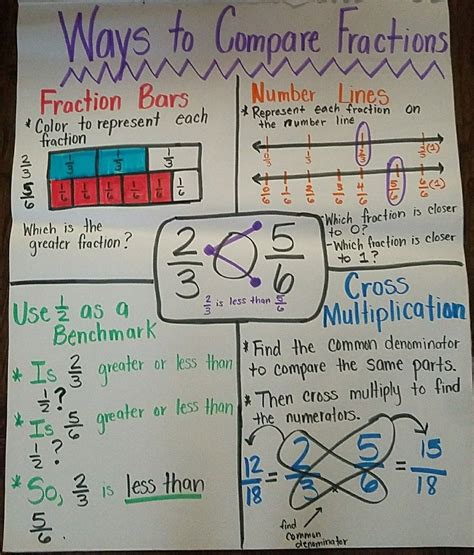 Ways to Compare Fractions
Fraction Bars
* Color to represent each
fraction
2/3
1/3 1/3 1/3
5/6
1/6 1/6 1/6 1/6 1/6 1/6
Which is the
greater fraction?
Number Lines
* Represent each fraction on
the number line
0/3 1/3 2/3 3/3 (1)
0/6 1/6 2/6 3/6 4/6 5/6 6/6 (1)
- Which fraction is closer
to 0?
- Which fraction is closer
to 1?
2/3 5/6
2/3 is less than 5/6
Use 1/2 as a
Benchmark
* Is 2/3 greater or less than
1/2?
* Is 5/6 greater or less than
1/2?
* So, 2/3 is less than
5/6.
Cross
Multiplication
* Find the common denominator
to compare the same parts.
* Then cross multiply to find
the numerators.
12/18 = 2/3 5/6 = 15/18
find
common
denominator